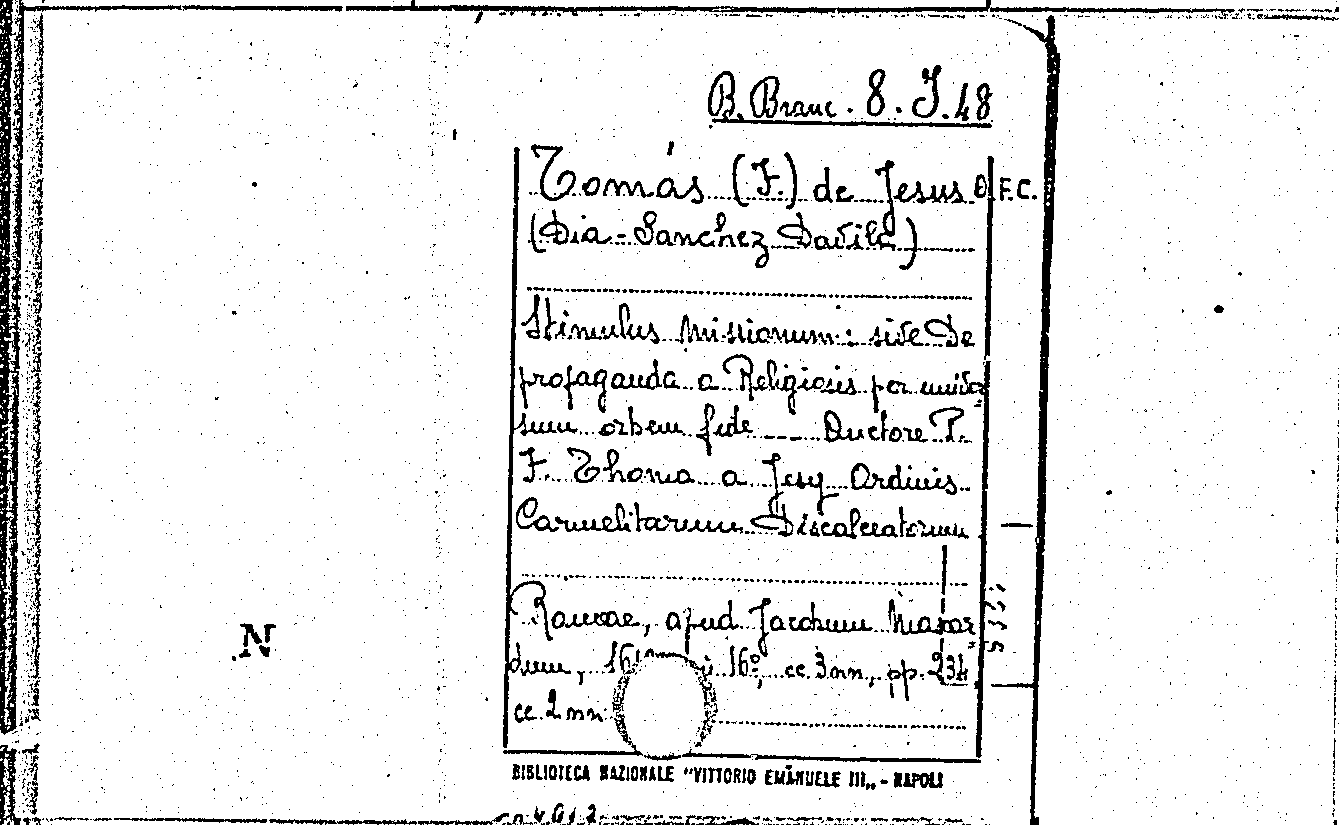 B. Branc. 8. J. 48
Tomás (F.) de Jesus O.F.C.
(Dia - Sanchez Davila)
Stimulus Missionum: sive De
propaganda a Religiosis per univer
sum orbem fide --- Auctore P.
F. Thoma a Jesu Ordinis
Carmelitarum Discalceatorum
Romae, apud Jacobum Mascar
dum, 16 in 16º, cc 3 nn, pp. 234
cc 2 nn
N
BIBLIOTECA NAZIONALE "VITTORIO EMANUELE III„ - NAPOLI